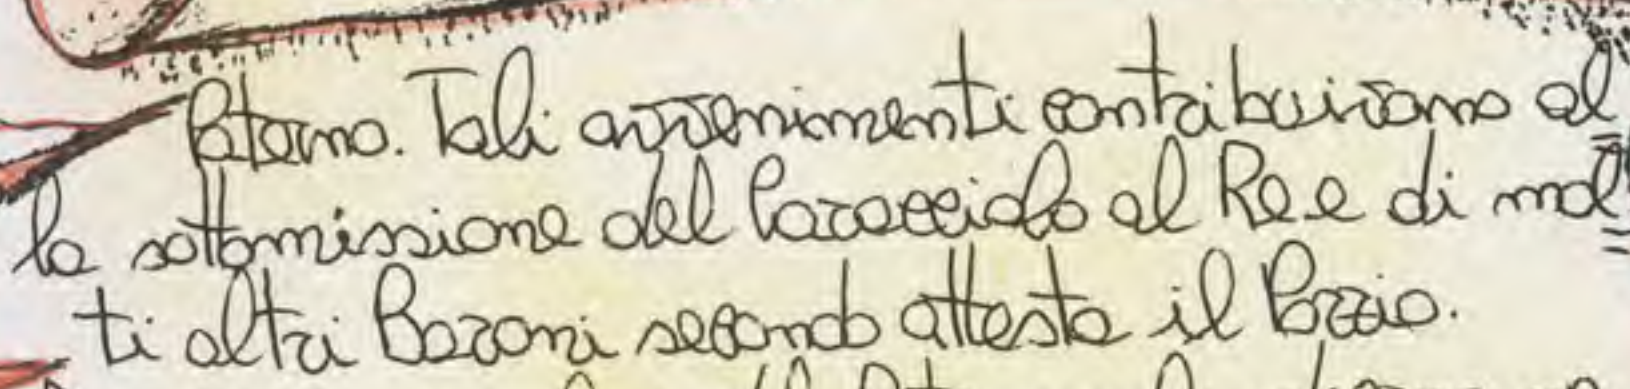 Paterno. Tali avvenimenti contribuirono al=
la sottomissione del Caracciolo al Re e di mol=
ti altri Baroni secondo attesta il